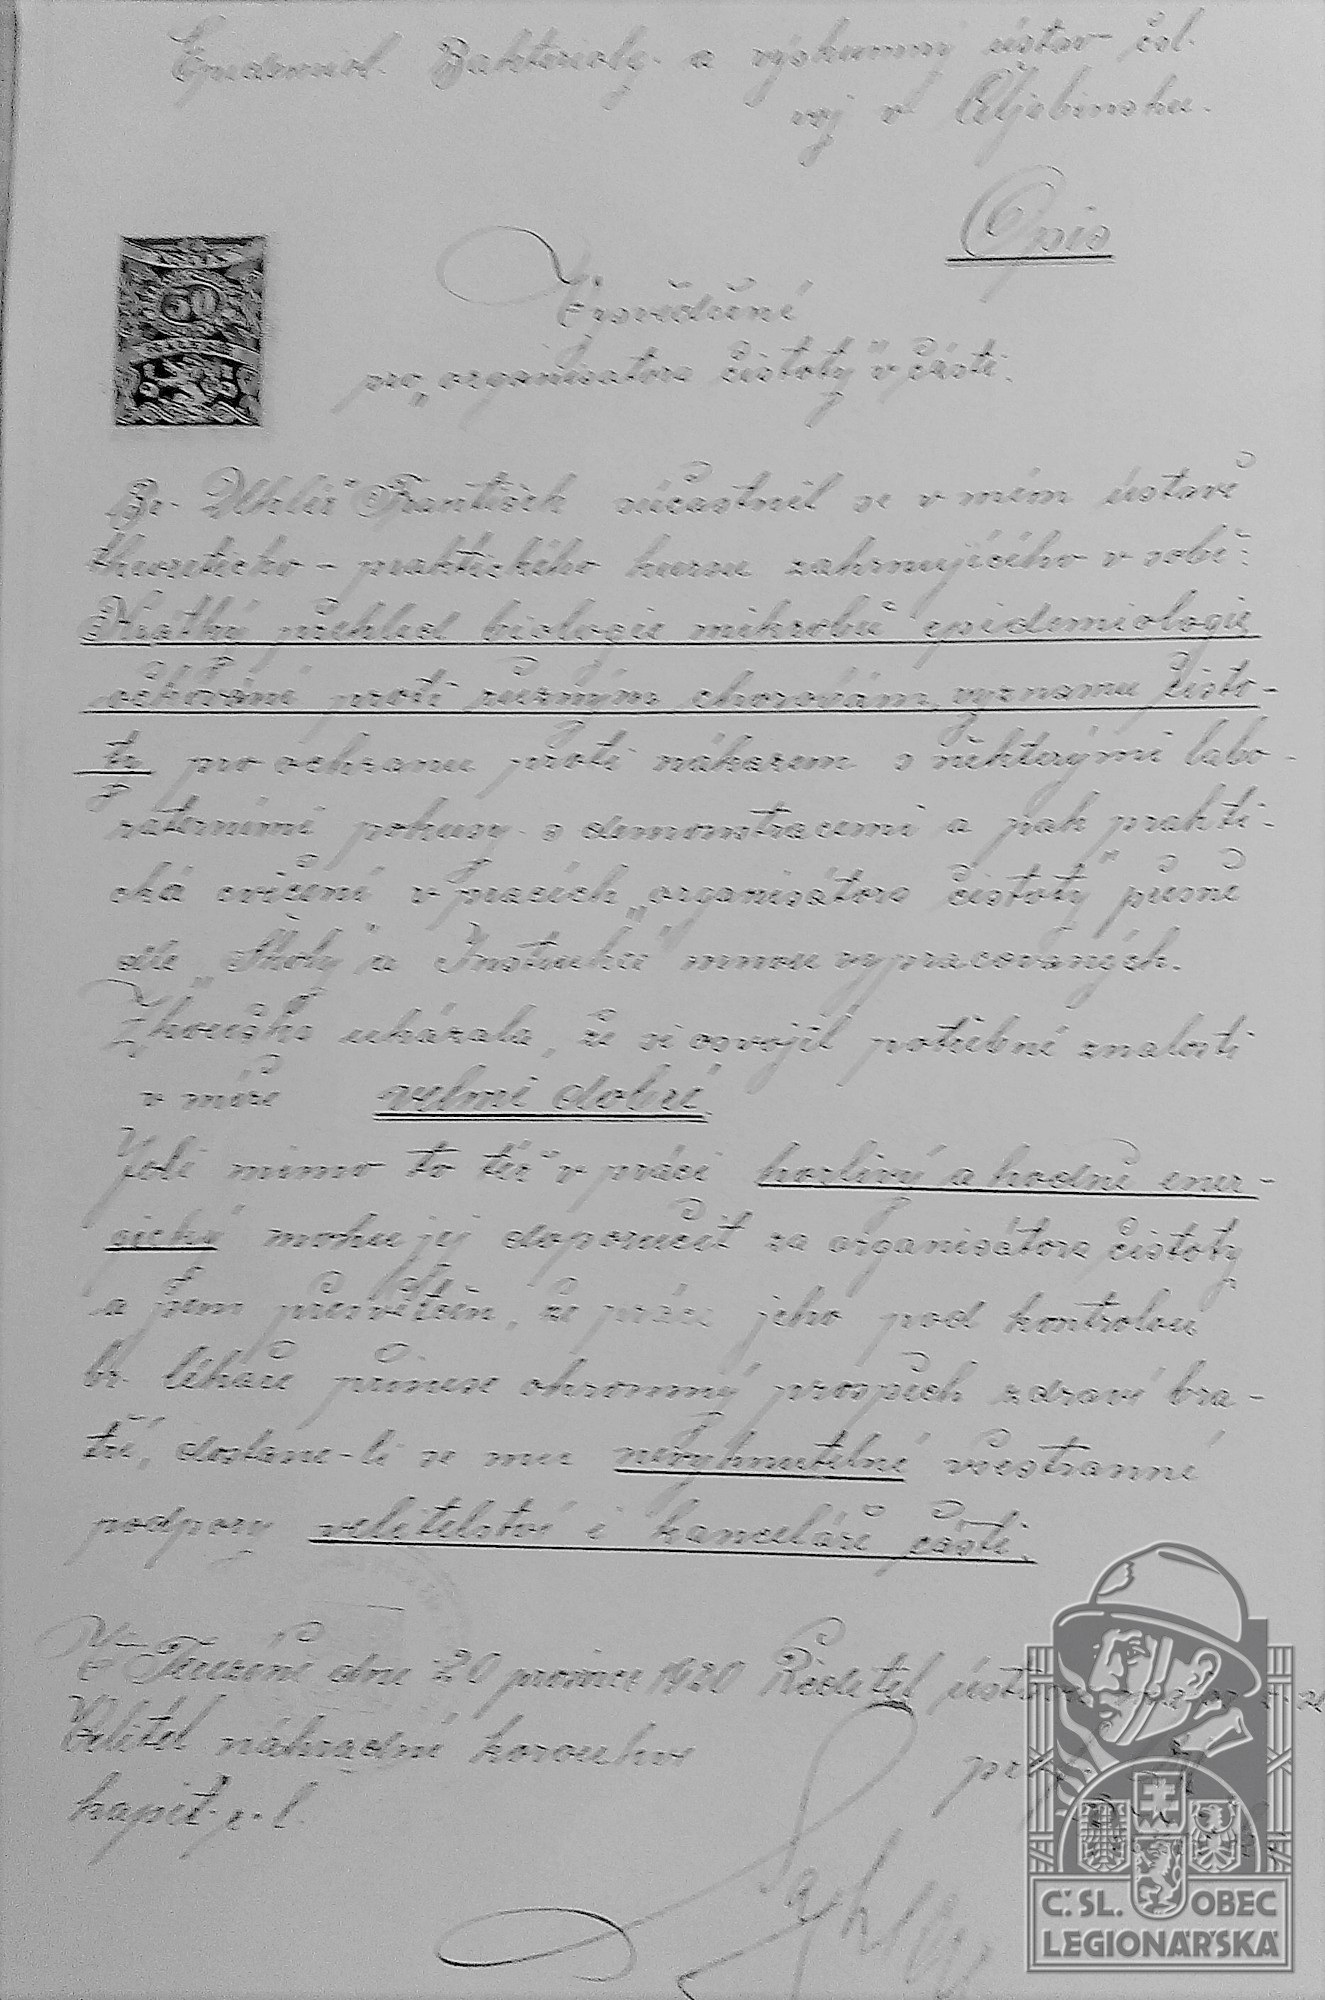 Epidemiol. Bakteriolg. a výskumný ústav čsl.
voj v Čeljabinsku.
Opis
50
Vysvědčení
pro „organisatora čistoty" v části.
Br. Uhlíř František súčastnil se v mém ústavě
theoreticko-praktického kursu zahrnujícího v sobě:
Krátký přehled biologie mikrobů epidemiologie
očkování proti různým chorobám, významu čisto-
ty pro ochranu proti nákazem s některými labo-
raterními pokusy s demonstracemi a pak prakti-
cká cvičení v pracích „organisátora čistoty" přesně
dle „Školy" a „Instrukcí" mnou vypracovaných.
Zkouška ukázala, že si osvojil potřebné znalosti
v míře velmi dobré
Jeli mimo to též v práci horlivý a hodně ener-
gický mohu jej doporučit za organisátora čistoty
a jsem přesvědčen, že práce jeho pod kontrolou
br. lékaře přinese ohromný prospěch zdraví bra-
tří, dostane-li se mu nevyhnutelné všestranné
podpory velitelství i kanceláře části.
V Terezíně dne 20 prosince 1920 Ředitel ústavu
Velitel náhradní korouhve
kapit. r. l.
Č.SL. OBEC
LEGIONÁŘSKÁ